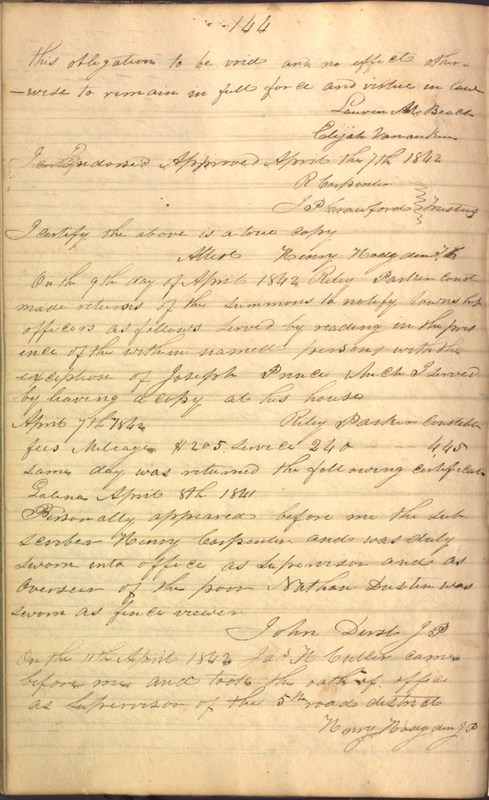 144
this obligation to be void and no effect other-
-wise to remain in full force and virtue in law
Lauren M. Beach
Elijah Vanausken
Endorsed Approved April the 7th 1842
R Carpenter
J P Crawford Trustees
I certify the above is a true copy
Attest Henry Hodgden
On the 9th day of April 1842 Riley Parker Const
made returns of the summons to notify township
officers as follows served by reading in the pres
ence of the within named persons with the
exception of Joseph Prince which I served
by leaving a copy at his house
April 7th 1842 Riley Parker Constable
fees Mileage $205 service 240 445
same day was returned the following certificate
Galena April 8th 1841
Personally appeared before me the sub
scriber Henry Carpenter and was duly
sworn into office as Supervisor and as
Overseer of the poor Nathan Dustin was
sworn as fence viewer
John Durst J P
On the 11th April 1842 Jas N Culler came
before me and took the oath of office
as Supervisor of the 5th road district
Henry Hodgden J P